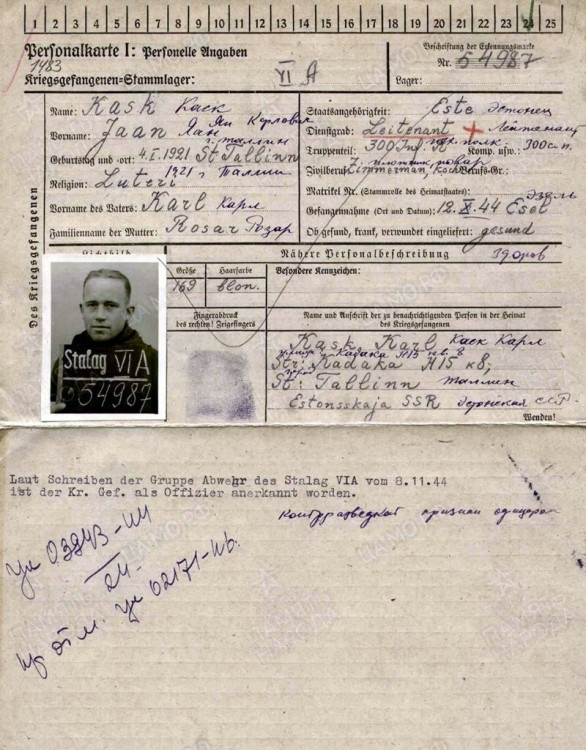 1 2 3 4 5 6 7 8 9 10 11 12 13 14 15 16 17 18 19 20 21 22 23 24 25
Personalkarte I: Personelle Angaben
1483
Kriegsgefangenen-Stammlager: VI A
Beschriftung der Erkennungsmarke
Nr. 54987
Lager:
Des Kriegsgefangenen
Name: Kask Каск
Vorname: Jaan Яан Карлович
г. Таллин
Geburtstag und -ort: 4.I.1921 St Tallinn
1921 г Таллин
Religion: Luteri
Vorname des Vaters: Karl Карл
Familienname der Mutter: Rosar Розар
Staatsangehörigkeit: Este эстонец
Dienstgrad: Leitenant + Лейтенант
Truppenteil: 300 Inf. R. полк Komp. usw.: 300 сп.
плотник, повар
Zivilberuf: Zimmerman, Koch Berufs-Gr.:
Matrikel Nr. (Stammrolle des Heimatstaates):
Эзель
Gefangennahme (Ort und Datum): 12.X.44 Esel
Ob gesund, krank, verwundet eingeliefert: gesund
здоров
Lichtbild
Nähere Personalbeschreibung
Größe Haarfarbe Besondere Kennzeichen:
169 blon.
Fingerabdruck
des rechten! Zeigefingers
Name und Anschrift der zu benachrichtigenden Person in der Heimat
des Kriegsgefangenen
Kask Karl Каск Карл
улица Кадака H15 кв. 8
Str: Kadaka H15 k8,
город
St: Tallinn Таллин
Estonsskaja SSR Эстонская ССР
Wenden!
Stalag VI A
54987
Laut Schreiben der Gruppe Abwehr des Stalag VIA vom 8.11.44
ist der Kr. Gef. als Offizier anerkannt worden.
Контрразведкой признан офицером